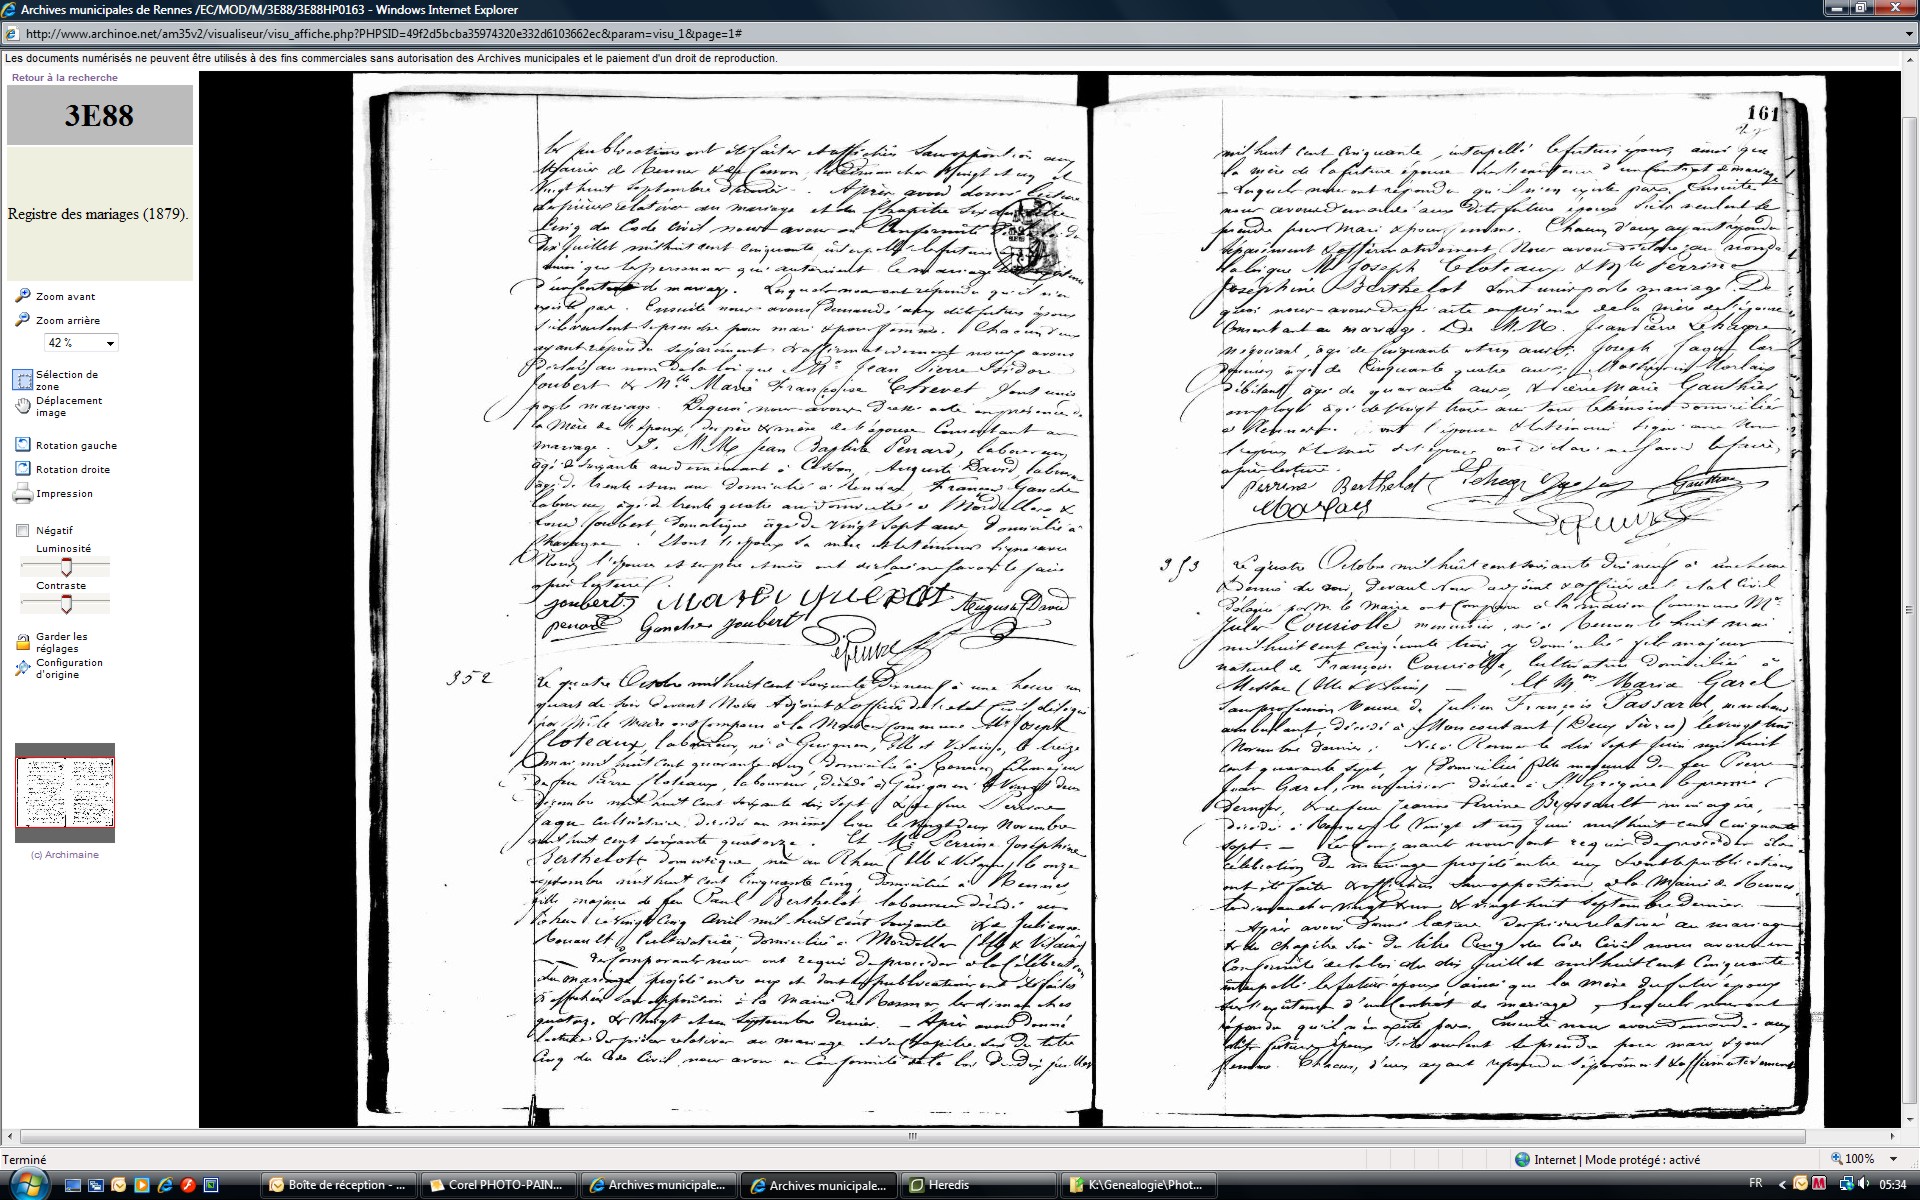 Archives municipales de Rennes /EC/MOD/M/3E88/3E88HP0163 - Windows Internet Explorer
http://www.archinoe.net/am35v2/visualiseur/visu_affiche.php?PHPSID=49f2d5bcba35974320e332d6103662ec&param=visu_1&page=1#
Les documents numérisés ne peuvent être utilisés à des fins commerciales sans autorisation des Archives municipales et le paiement d'un droit de reproduction.
Retour à la recherche
3E88
Registre des mariages (1879).
Zoom avant
Zoom arrière
42 %
Sélection de
zone
Déplacement
image
Rotation gauche
Rotation droite
Impression
Négatif
Luminosité
Contraste
Garder les
réglages
Configuration
d'origine
(c) Archimaine
les publications ont été faites et affichées sans opposition aux
Mairies de Rennes et de Cesson, les dimanches vingt et un et
vingt huit septembre dernier. Après avoir donné lecture
des pièces relatives au mariage et du Chapitre six du titre
Cinq du Code Civil nous avons en Conformité de la loi du
dix Juillet mil huit cent cinquante interpellé les futurs époux
ainsi que les personnes qui autorisent le mariage
d'un contrat de mariage. Lesquels nous ont répondu qu'il n'en
existe pas. Ensuite nous avons demandé aux dits futurs époux
s'ils veulent se prendre pour mari et pour femme. Chacun d'eux
ayant répondu séparément et affirmativement nous avons
déclaré au nom de la loi que Mr Jean Pierre Isidore
Joubert & Mlle Marie Françoise Chevet sont unis
par le mariage. De quoi nous avons dressé acte en présence de
la Mère de l'époux, du père et mère de l'épouse Consentant au
mariage. De MM. Jean Baptiste Penard, laboureur,
âgé de soixante ans demeurant à Cesson, Auguste David, laboureur
âgé de trente et un ans domicilié à Rennes, François Ganche
laboureur, âgé de trente quatre ans domicilié à Mordelles &
Louis Joubert Domestique âgé de vingt sept ans domicilié à
Chavagne. Et ont l'époux sa mère et les témoins signé avec
Nous, l'épouse et ses père et mère ont déclaré ne savoir le faire
après lecture.
Joubert Marie Auguste David
Penard Ganche Joubert
352
Le quatre Octobre mil huit cent soixante dix neuf à une heure un
quart du soir devant Nous Adjoint & officier de l'état Civil délégué
par Mr le Maire ont Comparu à la Maison Commune Mr Joseph
Cloteaux, laboureur, né à Guignen, Ille et Vilaine, le treize
mai mil huit cent quarante domicilié à Rennes fils majeur
de feu Pierre Cloteaux, laboureur, décédé à Guignen le vingt deux
décembre mil huit cent soixante dix sept & de feue Perrine
Jagu Cultivatrice, décédée au même lieu le vingt deux Novembre
mil huit cent soixante quatorze. Et Mlle Perrine Joséphine
Berthelot domestique née au Rheu (Ille & Vilaine) le onze
septembre mil huit cent cinquante cinq, domiciliée à Rennes
fille majeure de feu Paul Berthelot laboureur décédé au
Rheu le vingt cinq Avril mil huit cent soixante & de Julienne
Rouault, Cultivatrice, domiciliée à Mordelles (Ille & Vilaine)
Les Comparants nous ont requis de procéder à la Célébration
du mariage projeté entre eux et dont les publications ont été faites
& affichées sans opposition à la Mairie de Rennes les dimanches
quatorze & vingt et un Septembre dernier. — Après avoir donné
lecture des pièces relatives au mariage et du Chapitre six du titre
Cinq du Code Civil, nous avons en Conformité de la loi du dix juillet
161
mil huit cent cinquante, interpellé les futurs époux, ainsi que
la mère de la future épouse sur l'existence d'un contrat de mariage
Lesquels nous ont répondu qu'il n'en existe pas. Ensuite
nous avons demandé aux dits futurs époux s'ils veulent se
prendre pour Mari & pour femme. Chacun d'eux ayant répondu
séparément & affirmativement Nous avons déclaré au nom de
la loi que Mr Joseph Cloteaux & Mlle Perrine
Joséphine Berthelot sont unis par le mariage. De
quoi nous avons dressé acte en présence de la mère de l'épouse
Consentant au mariage. De MM. Jean Pierre
négociant, âgé de cinquante et un ans, Joseph Jagu
âgé de Cinquante quatre ans, Mathurin Marlais
débitant âgé de quarante ans, & Pierre Marie Gauthier
employé âgé de vingt trois ans tous témoins domiciliés
à Rennes. ont l'épouse & les témoins signé avec Nous
l'époux & la mère de l'épouse ont déclaré ne savoir le faire,
après lecture.
Perrine Berthelot Gauthier
Marlais
353
Le quatre Octobre mil huit cent soixante dix neuf à une heure
& demie du soir, devant Nous adjoint & officier de l'état Civil
délégué par M. le Maire ont Comparu à la maison Commune Mr
Jules Couriolle menuisier, né à Rennes le huit mai
mil huit cent cinquante trois, y domicilié fils majeur
naturel de Françoise Couriolle, Cultivatrice domiciliée à
Messac (Ille & Vilaine) — Et Mme Maria Garel
sans profession Veuve de Julien François Passard, marchand
ambulant, décédé à Moncoutant (Deux Sèvres) le vingt huit
Novembre dernier; Née à Rennes le dix sept Juin mil huit
cent quarante sept y domiciliée fille majeure de feu Pierre
Jean Garel, menuisier décédé à St Grégoire le premier
dernier, & de feue Jeanne Perrine Brossault ménagère,
décédée à Rennes le vingt et un Juin mil huit cent cinquante
sept. — Les Comparants nous ont requis de procéder à la
célébration du mariage projeté entre eux & dont les publications
ont été faites & affichées sans opposition à la Mairie de Rennes
les dimanches vingt & un & vingt huit septembre dernier. —
Après avoir donné lecture des pièces relatives au mariage
& du chapitre six du titre Cinq du Code Civil nous avons en
Conformité de la loi du dix Juillet mil huit cent Cinquante
interpellé les futurs époux ainsi que la mère du futur époux
sur l'existence d'un Contrat de mariage, lesquels nous ont
répondu qu'il n'en existe pas. Ensuite nous avons demandé aux
dits futurs époux s'ils veulent se prendre pour mari & pour
femme. Chacun d'eux ayant répondu séparément & affirmativement
Terminé
Internet | Mode protégé : activé
100%
Boîte de réception - ...
Corel PHOTO-PAIN...
Archives municipale...
Archives municipale...
Heredis
K:\Genealogie\Phot...
FR
05:34